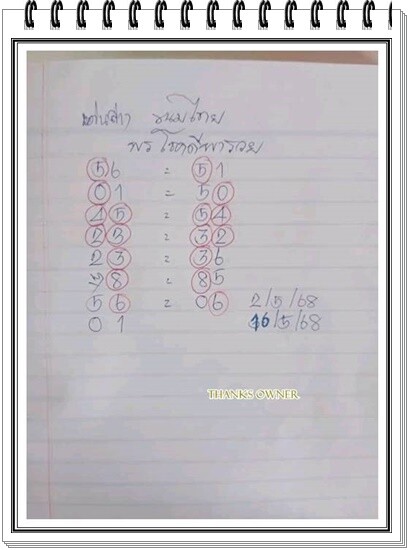 พร โชคดีพารวย
56 = 51
01 = 50
45 = 54
23 = 32
23 = 36
78 = 85
56 = 06 2/5/68
01 16/5/68
THANKS OWNER.